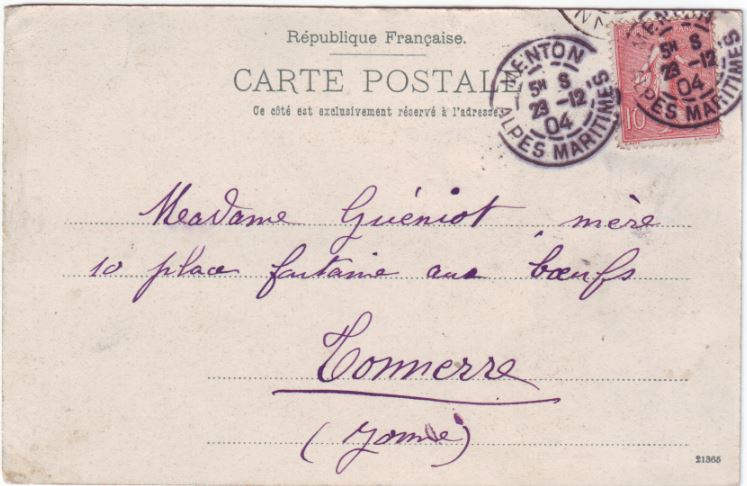 République Française.
CARTE POSTALE
Ce côté est exclusivement réservé à l'adresse.
MENTON
5H S
23 -12
04
ALPES MARITIMES
MENTON
5H S
23 -12
04
ALPES MARITIMES
10
Madame Guéniot mère
10 place fontaine aux bœufs
Tonnerre
(Yonne)
21365